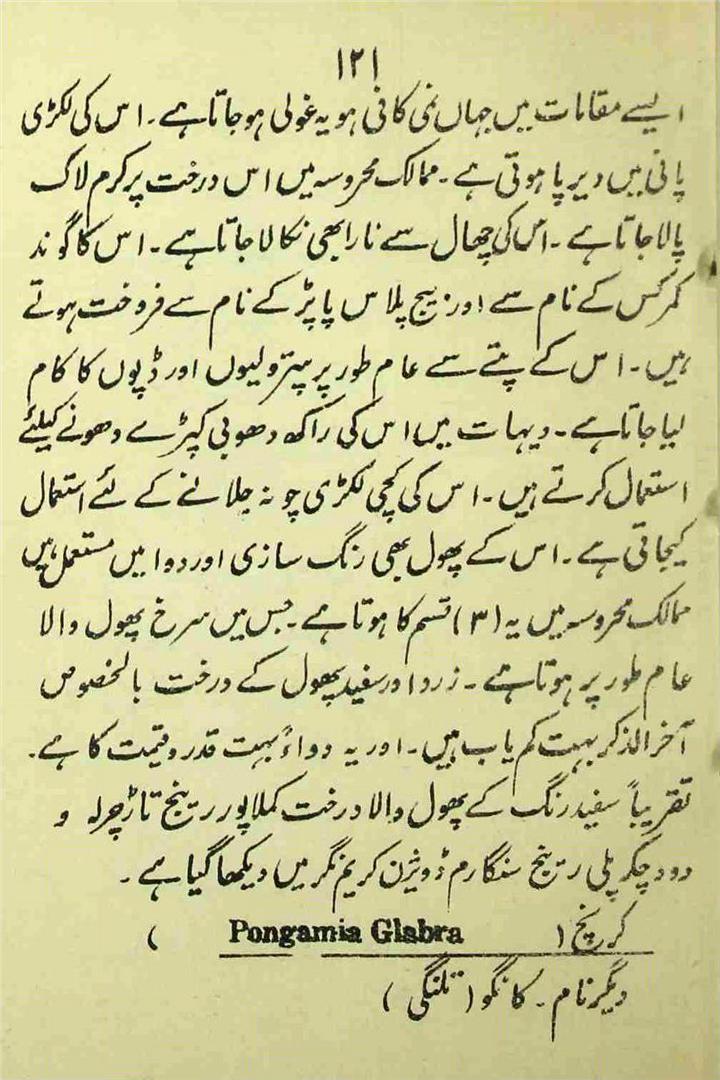 ۱۲۱
ایسے مقامات میں جہاں نمی کافی ہو یہ غولی ہوجاتا ہے۔ اس کی لکڑی
پانی میں دیرپا ہوتی ہے۔ ممالک محروسہ میں اس درخت پر کرم لاک
پالا جاتا ہے۔ اس کی چھال سے نارا بھی نکالا جاتا ہے۔ اس کا گوند
کمرکس کے نام سے اور بیج پلاس پاپڑ کے نام سے فروخت ہوتے
ہیں۔ اس کے پتے سے عام طور پر پترولیوں اور ڈپوں کا کام
لیا جاتا ہے۔ دیہات میں اس کی راکھ دھوبی کپڑے دھونے کیلئے
استعمال کرتے ہیں۔ اس کی کچی لکڑی چونہ جلانے کے لئے استعمال
کیجاتی ہے۔ اس کے پھول بھی رنگ سازی اور دوا میں مستعمل ہیں
ممالک محروسہ میں یہ (۳) قسم کا ہوتا ہے۔ جس میں سرخ پھول والا
عام طور پر ہوتا ہے۔ زرد اور سفید پھول کے درخت بالخصوص
آخر الذکر بہت کم یاب ہیں۔ اور یہ دواءً بہت قدر و قیمت کا ہے۔
تقریباً سفید رنگ کے پھول والا درخت کملاپور رینج تاڑچرلہ و
دودچکر پلی رینج سنگارم ڈویژن کریم نگر میں دیکھا گیا ہے۔
کرنج ( Pongamia Glabra )
دیگر نام۔ کانگو (تلنگی)